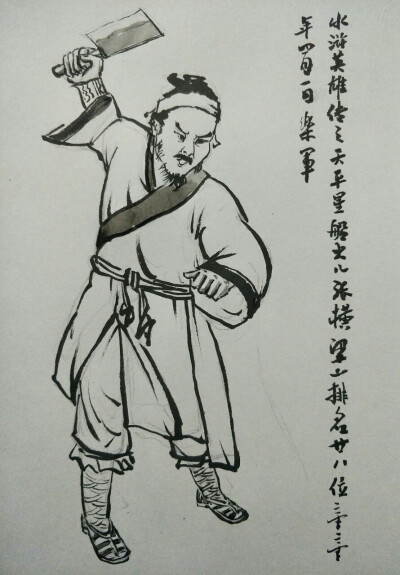 水浒英雄传之天平星船火儿张横梁山排名廿八位二零二零
年四月一日梁军